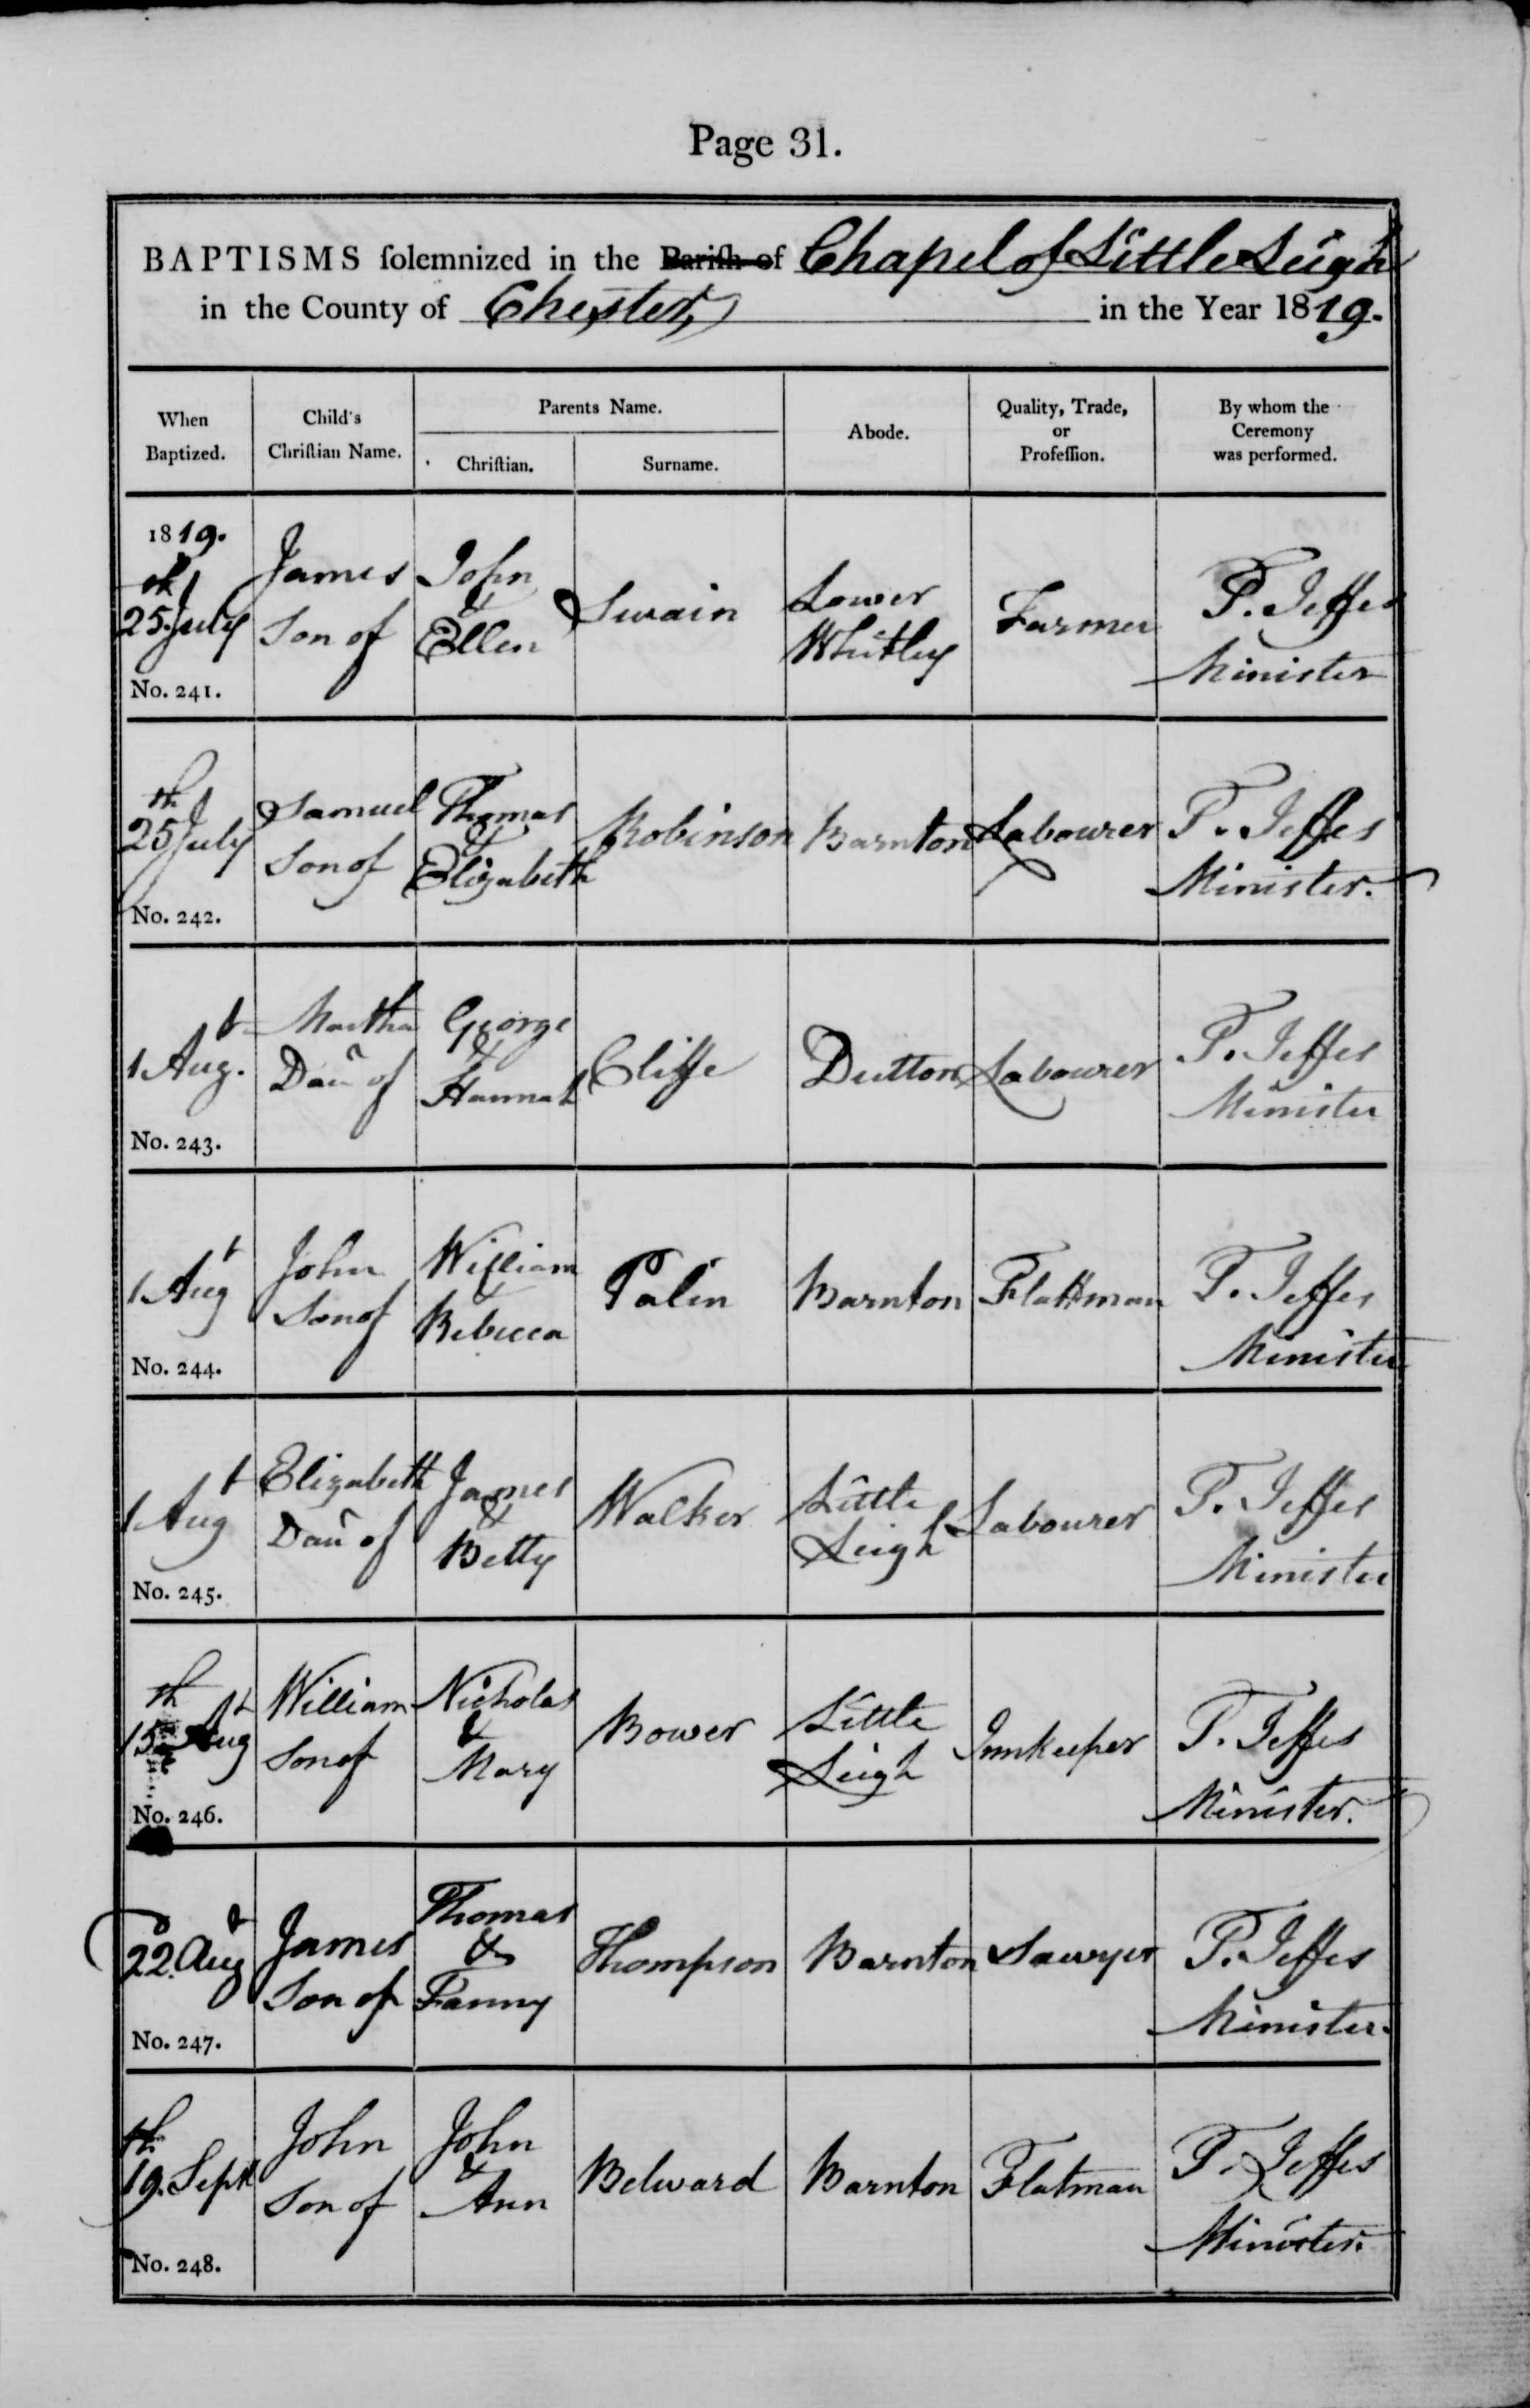 Page 31.
BAPTISMS solemnized in the Parish of Chapel of Little Leigh
in the County of Chester in the Year 1819.
When Baptized.
Child's Christian Name.
Parents Name.
Christian.
Surname.
Abode.
Quality, Trade, or Profession.
By whom the Ceremony was performed.
1819.
25th July
No. 241.
James
Son of
John
&
Ellen
Swain
Lower
Whitley
Farmer
T. Jeffes
Minister
25th July
No. 242.
Samuel
Son of
Thomas
&
Elizabeth
Robinson
Barnton
Labourer
T. Jeffes
Minister.
1 Augt.
No. 243.
Martha
Dau of
George
&
Hannah
Cliffe
Dutton
Labourer
T. Jeffes
Minister
1 Augt
No. 244.
John
Son of
William
&
Rebecca
Palin
Barnton
Flattman
T. Jeffes
Minister
1 Augt
No. 245.
Elizabeth
Dau of
James
&
Betty
Walker
Little
Leigh
Labourer
T. Jeffes
Minister
15th Augt
No. 246.
William
Son of
Nicholas
&
Mary
Bower
Little
Leigh
Innkeeper
T. Jeffes
Minister.
22d. Augt
No. 247.
James
Son of
Thomas
&
Fanny
Thompson
Barnton
Sawyer
T. Jeffes
Minister.
19th. Sept
No. 248.
John
Son of
John
&
Ann
Belward
Barnton
Flatman
T. Jeffes
Minister.